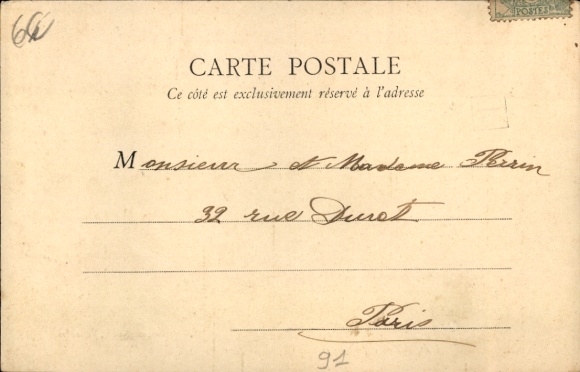 POSTES
CARTE POSTALE
Ce côté est exclusivement réservé à l'adresse
Monsieur et Madame Perrin
32 rue Duret
Paris
91